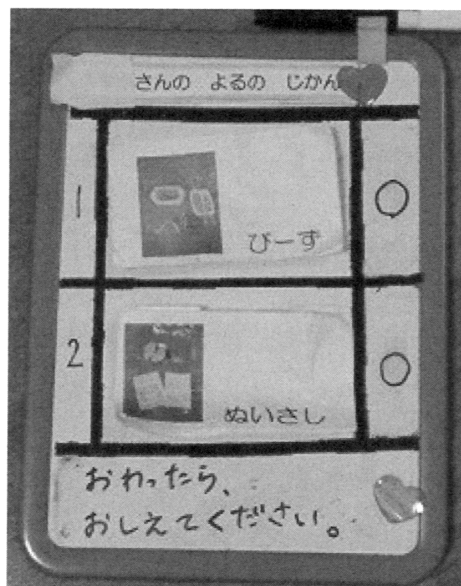 さんの よるの じかん
1
びーず
○
2
ぬいさし
○
おわったら、
おしえてください。